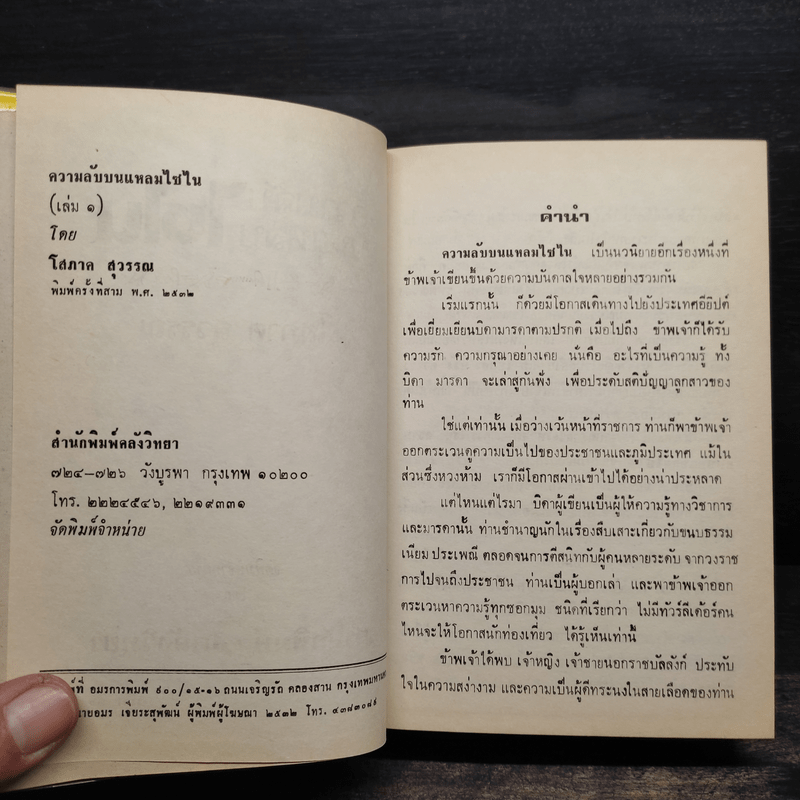 ความลับบนแหลมไซไน
(เล่ม ๑)
โดย
โสภาค สุวรรณ
พิมพ์ครั้งที่สาม พ.ศ. ๒๕๓๒
สำนักพิมพ์คลังวิทยา
๗๒๔–๗๒๖ วังบูรพา กรุงเทพ ๑๐๒๐๐
โทร. ๒๒๒๔๕๔๖, ๒๒๑๙๓๓๑
จัดพิมพ์จำหน่าย
ที่ อมรการพิมพ์ ๙๐๐/๑๕-๑๖ ถนนเจริญรัถ คลองสาน
อมร เจียระสุพัฒน์ ผู้พิมพ์ผู้โฆษณา ๒๕๓๒ โทร.
คำนำ
ความลับบนแหลมไซไน เป็นนวนิยายอีกเรื่องหนึ่งที่
ข้าพเจ้าเขียนขึ้นด้วยความบันดาลใจหลายอย่างรวมกัน
เริ่มแรกนั้น ก็ด้วยมีโอกาสเดินทางไปยังประเทศอียิปต์
เพื่อเยี่ยมเยียนบิดามารดาตามปรกติ เมื่อไปถึง ข้าพเจ้าก็ได้รับ
ความรัก ความกรุณาอย่างเคย นั่นคือ อะไรที่เป็นความรู้ ทั้ง
บิดา มารดา จะเล่าสู่กันฟัง เพื่อประดับสติปัญญาลูกสาวของ
ท่าน
ใช่แต่เท่านั้น เมื่อว่างเว้นหน้าที่ราชการ ท่านก็พาข้าพเจ้า
ออกตระเวนดูความเป็นไปของประชาชนและภูมิประเทศ แม้ใน
ส่วนซึ่งหวงห้าม เราก็มีโอกาสผ่านเข้าไปได้อย่างน่าประหลาด
แต่ไหนแต่ไรมา บิดาผู้เขียนเป็นผู้ให้ความรู้ทางวิชาการ
และมารดานั้น ท่านชำนาญนักในเรื่องสืบเสาะเกี่ยวกับขนบธรรม
เนียม ประเพณี ตลอดจนการตีสนิทกับผู้คนหลายระดับ จากวงราช
การไปจนถึงประชาชน ท่านเป็นผู้บอกเล่า และพาข้าพเจ้าออก
ตระเวนหาความรู้ทุกซอกมุม ชนิดที่เรียกว่า ไม่มีทัวร์ลีเด้อร์คน
ไหนจะให้โอกาสนักท่องเที่ยว ได้รู้เห็นเท่านี้
ข้าพเจ้าได้พบ เจ้าหญิง เจ้าชายนอกราชบัลลังก์ ประทับ
ใจในความสง่างาม และความเป็นผู้ดีทระนงในสายเลือดของท่าน